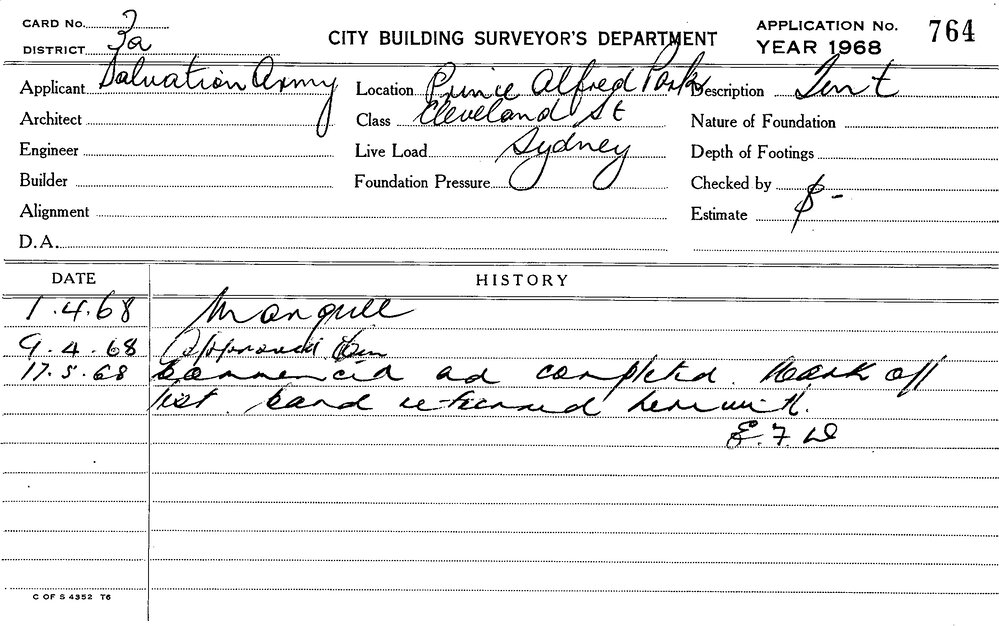 CARD No.
DISTRICT 3a
CITY BUILDING SURVEYOR'S DEPARTMENT
APPLICATION No. 764
YEAR 1968
Applicant Salvation Army
Location Prince Alfred Park
Description Tent
Architect
Class Cleveland St
Nature of Foundation
Engineer
Live Load Sydney
Depth of Footings
Builder
Foundation Pressure
Checked by
Alignment
Estimate $ -
D.A.
DATE HISTORY
1.4.68
9.4.68 Approved
17.5.68 Commenced and completed. Mark off
list. Card returned herewith.
E.F.W
C OF S 4352 T6